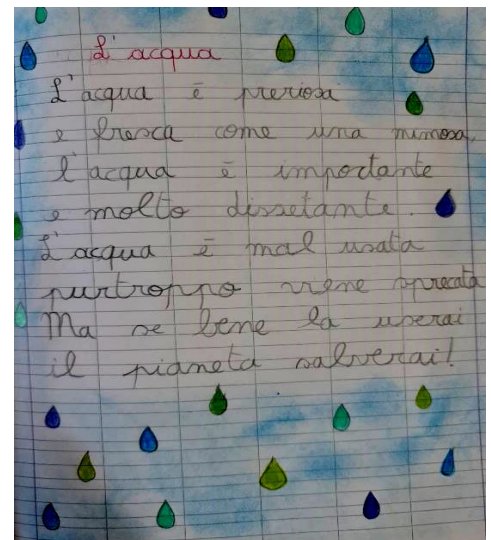 L'acqua
L'acqua è preziosa
e fresca come una mimosa,
l'acqua è importante
e molto dissetante.
L'acqua è mal usata
purtroppo viene sprecata
Ma se bene la userai
il pianeta salverai!